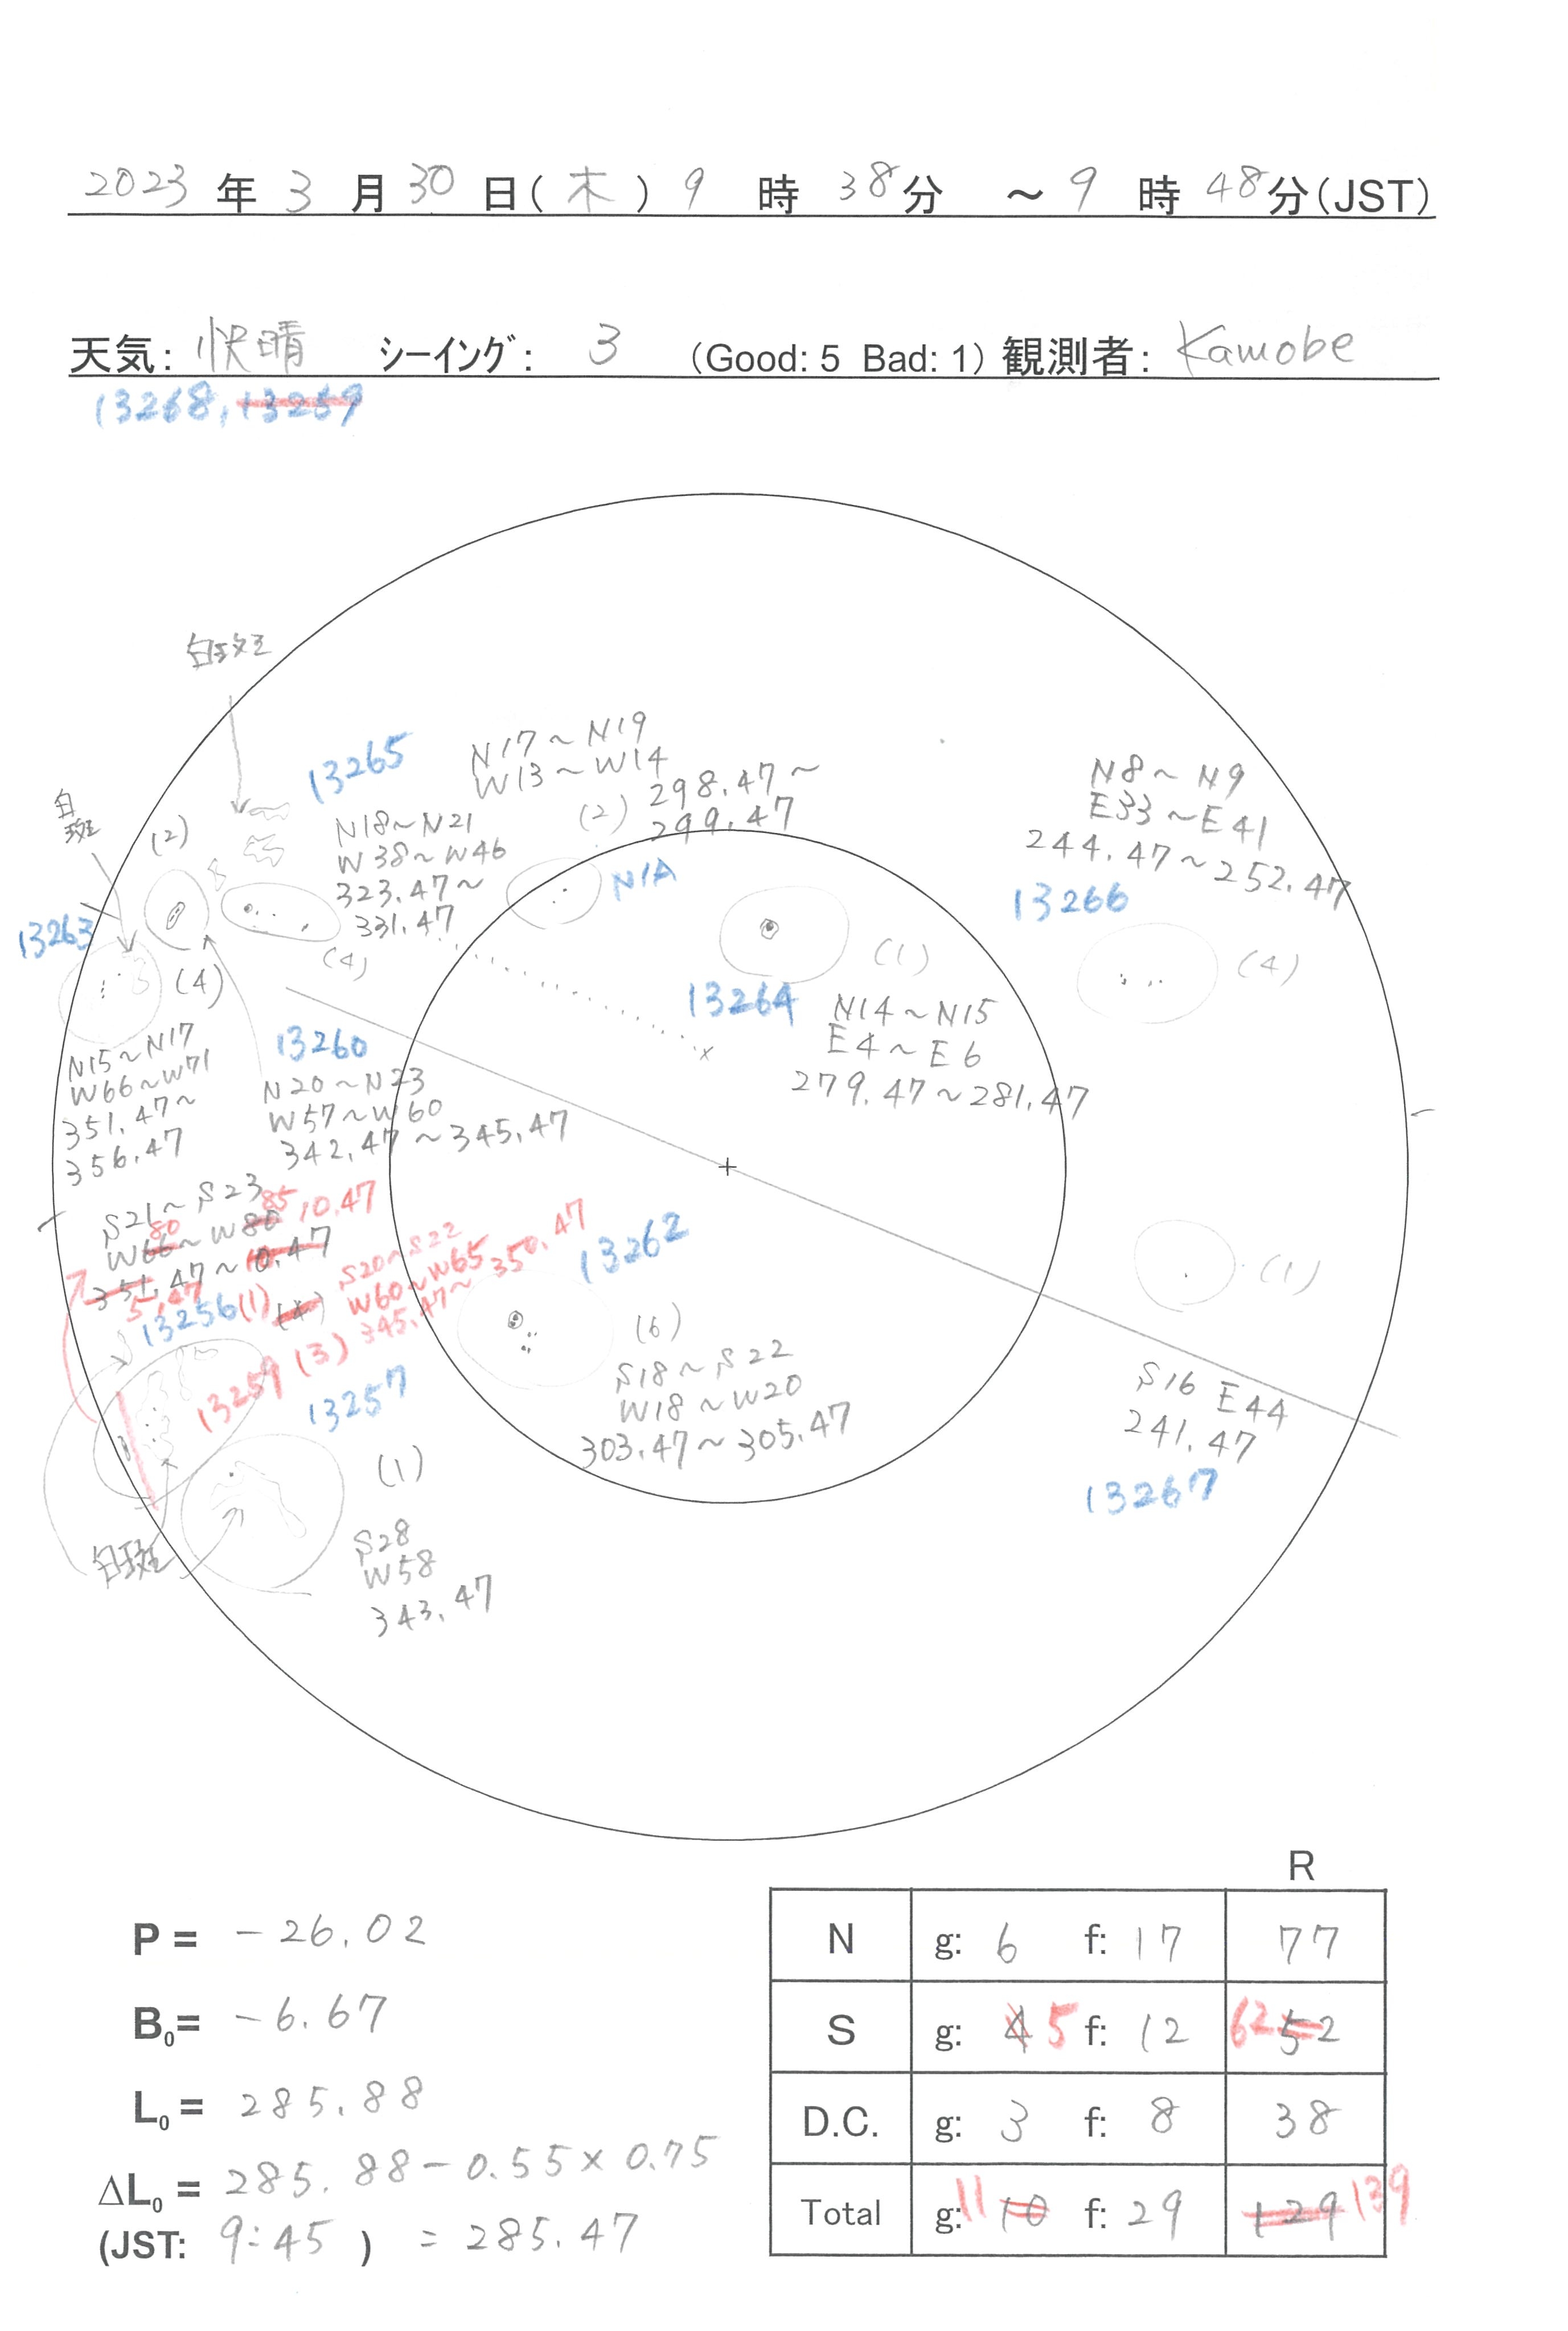 2023 年 3 月 30 日(木) 9 時 38分 ～9 時 48分(JST)
天気: 快晴 シーイング: 3 (Good: 5 Bad: 1) 観測者: Kamobe
13268, 13259
白斑
白斑
(2)
13265
N18～N21
W38～W46
323.47～
331.47
(4)
N17～N19
W13～W14
(2) 298.47～
299.47
N/A
N8～N9
E33～E41
244.47～252.47
13266
(4)
13263
(4)
N15～N17
W66～W71
351.47～
356.47
13260
N20～N23
W57～W60
342.47～345.47
(1)
13264
N14～N15
E4～E6
279.47～281.47
×
S21～S23
W66 80～W80 85
351.47～10.47
5.47
10.47
13256 (1) (4)
S20～S22
W60～W65
345.47～350.47
13259 (3)
13257
(1)
S28
W58
343.47
白斑
13262
(6)
S18～S22
W18～W20
303.47～305.47
(1)
S16 E44
241.47
13267
P = -26.02
B0= -6.67
L0 = 285.88
ΔL0 = 285.88-0.55×0.75
(JST: 9:45 ) = 285.47
R
N g: 6 f: 17 77
S g: 4 5 f: 12 62 52
D.C. g: 3 f: 8 38
Total g: 11 10 f: 29 129 139